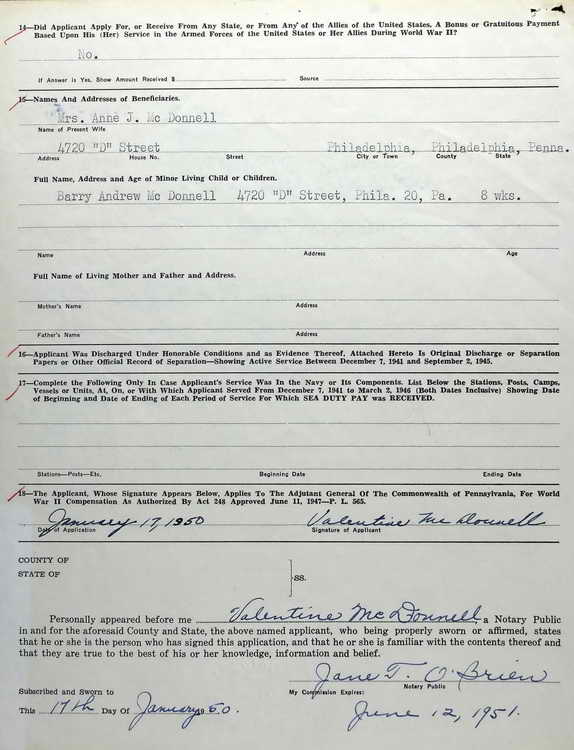 14—Did Applicant Apply For, or Receive From Any State, or From Any of the Allies of the United States, A Bonus or Gratuitous Payment
Based Upon His (Her) Service in the Armed Forces of the United States or Her Allies During World War II?
No.
If Answer is Yes, Show Amount Received $ Source
15—Names And Addresses of Beneficiaries.
Mrs. Anne J. Mc Donnell
Name of Present Wife
4720 "D" Street Philadelphia, Philadelphia, Penna.
Address House No. Street City or Town County State
Full Name, Address and Age of Minor Living Child or Children.
Barry Andrew Mc Donnell 4720 "D" Street, Phila. 20, Pa. 8 wks.
Name Address Age
Full Name of Living Mother and Father and Address.
Mother's Name Address
Father's Name Address
16—Applicant Was Discharged Under Honorable Conditions and as Evidence Thereof, Attached Hereto Is Original Discharge or Separation
Papers or Other Official Record of Separation—Showing Active Service Between December 7, 1941 and September 2, 1945.
17—Complete the Following Only In Case Applicant's Service Was In the Navy or Its Components. List Below the Stations, Posts, Camps,
Vessels or Units, At, On, or With Which Applicant Served From December 7, 1941 to March 2, 1946 (Both Dates Inclusive) Showing Date
of Beginning and Date of Ending of Each Period of Service For Which SEA DUTY PAY was RECEIVED.
Stations—Posts—Etc. Beginning Date Ending Date
18—The Applicant, Whose Signature Appears Below, Applies To The Adjutant General Of The Commonwealth of Pennsylvania, For World
War II Compensation As Authorized By Act 248 Approved June 11, 1947—P. L. 565.
January 17, 1950 Valentine Mc Donnell
Date of Application Signature of Applicant
COUNTY OF
STATE OF
ss.
Personally appeared before me Valentine Mc Donnell a Notary Public
in and for the aforesaid County and State, the above named applicant, who being properly sworn or affirmed, states
that he or she is the person who has signed this application, and that he or she is familiar with the contents thereof and
that they are true to the best of his or her knowledge, information and belief.
Jane T. O'Brien
Subscribed and Sworn to My Commission Expires: Notary Public
This 17th Day Of January 1950. June 12, 1951.